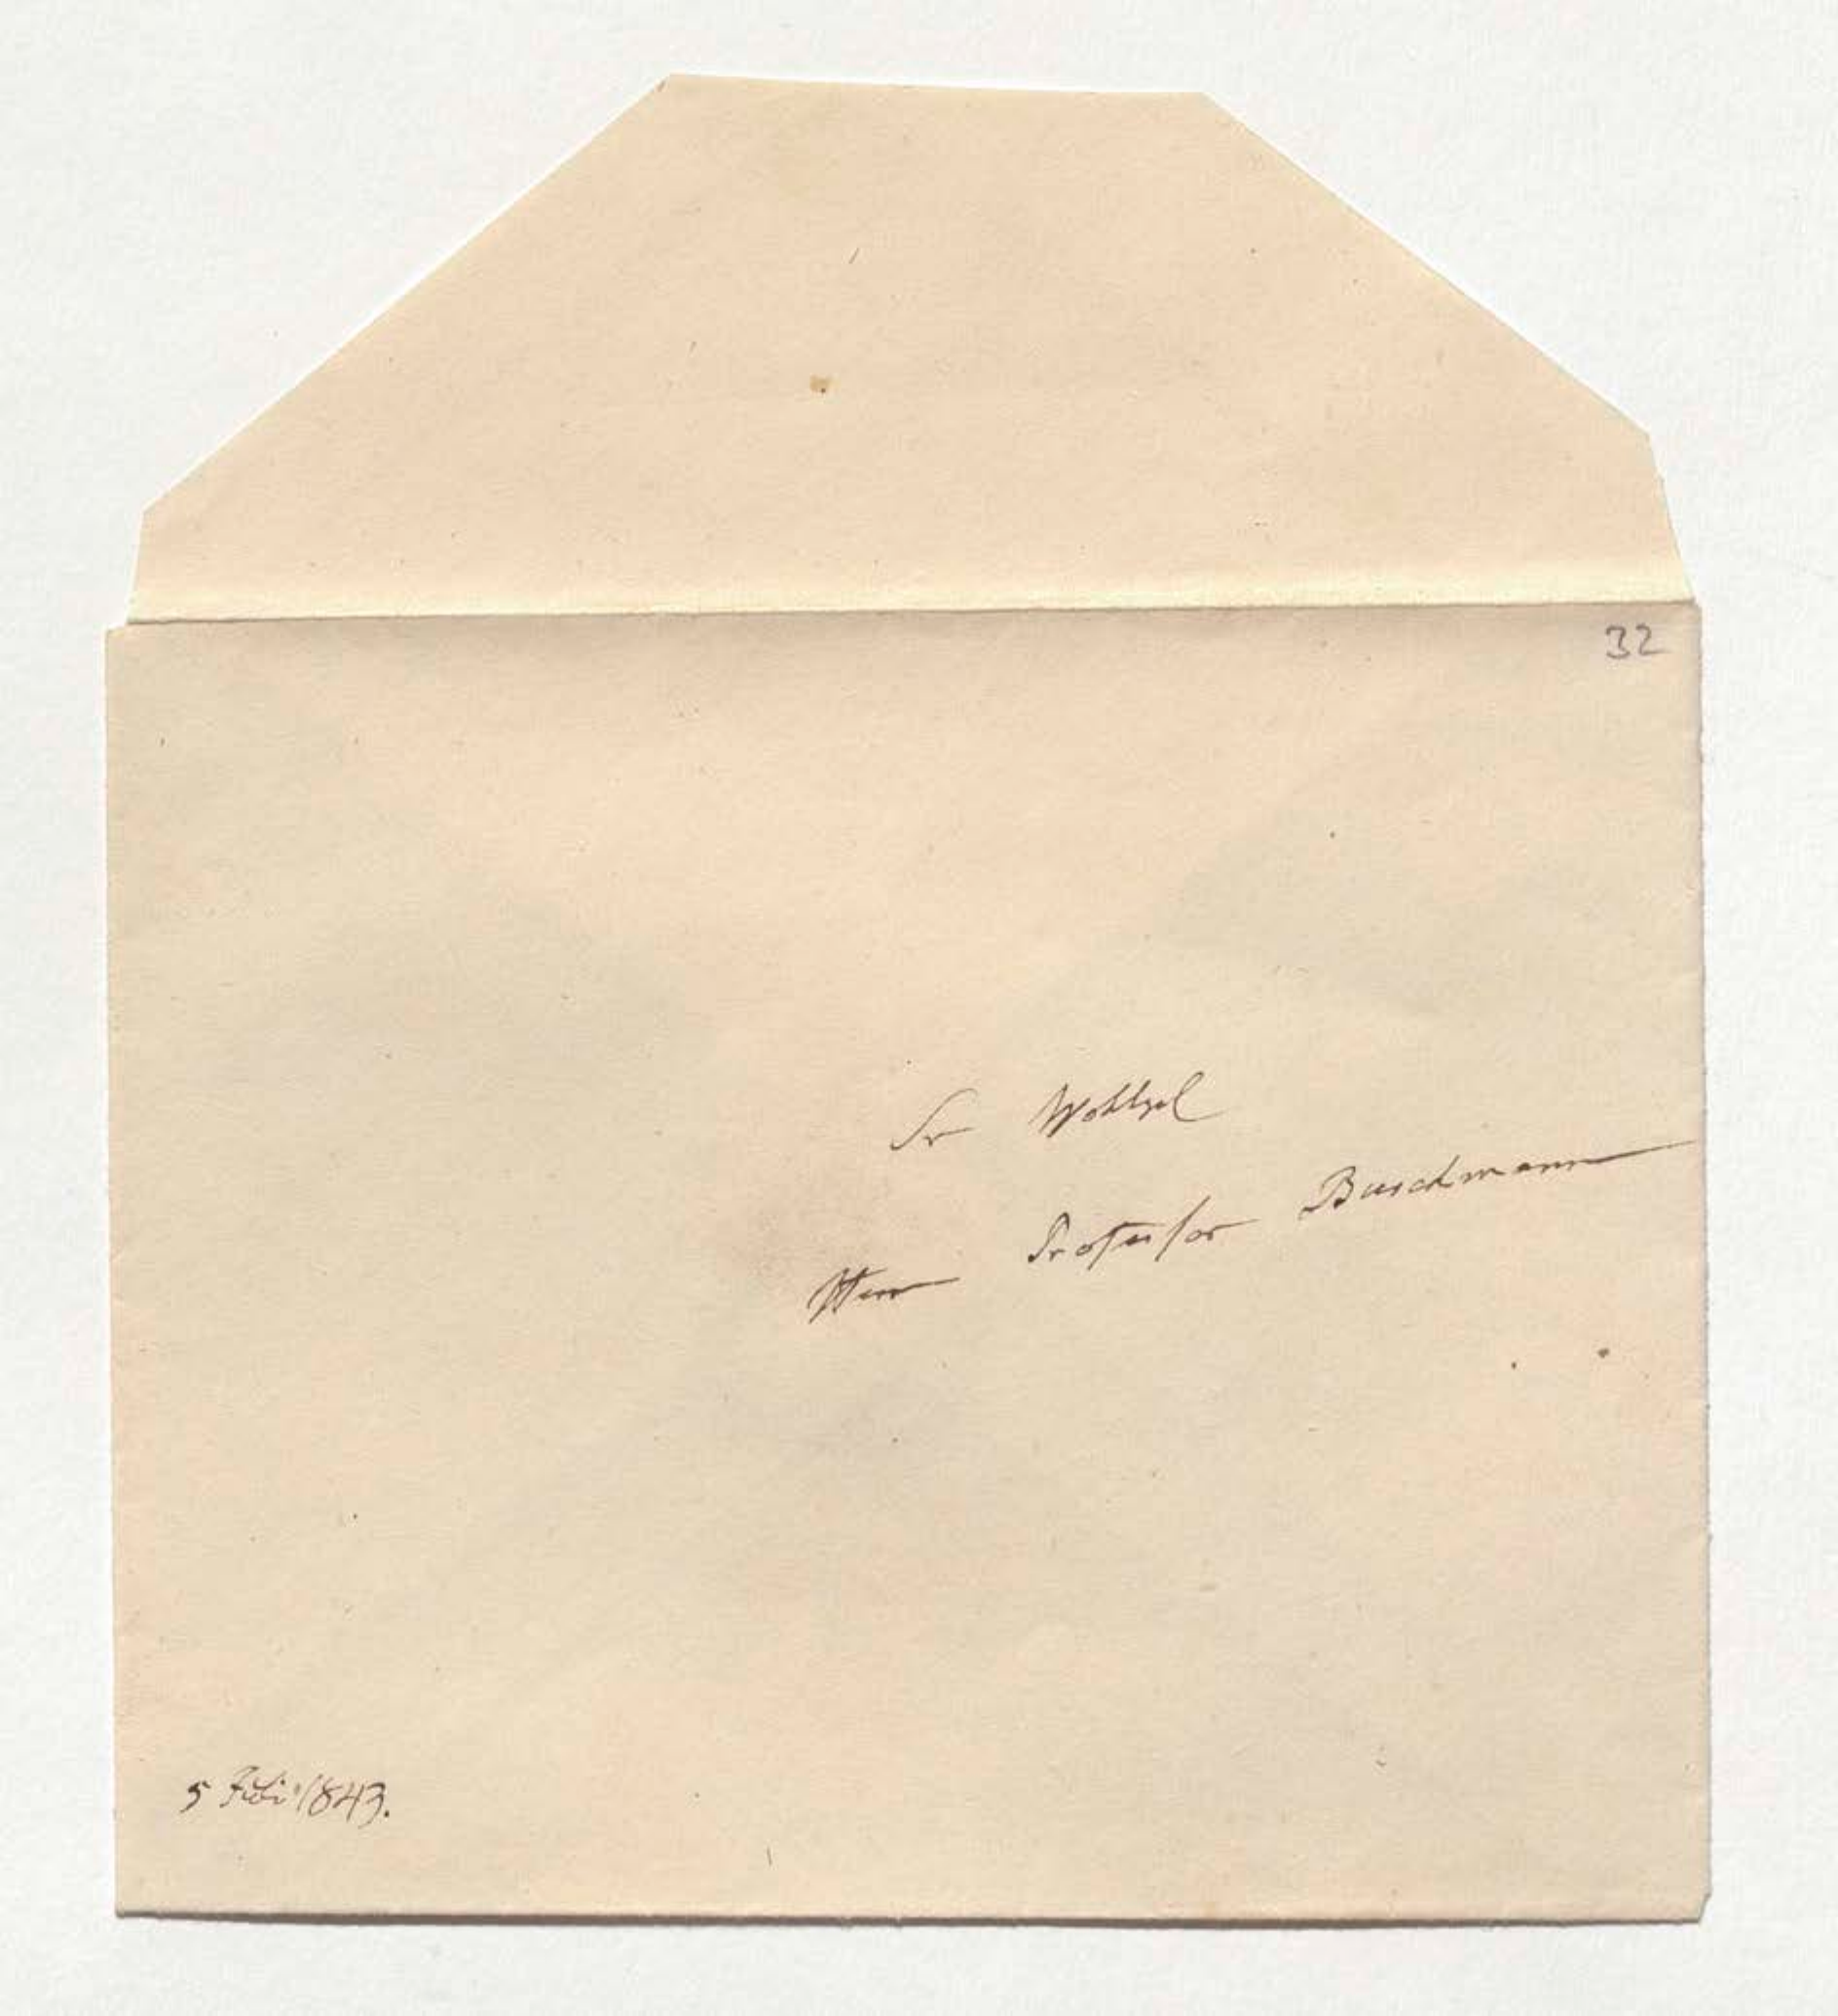 32
Sr Wohlgel
Herrn Professor Buschmann
5 Juli 1843.